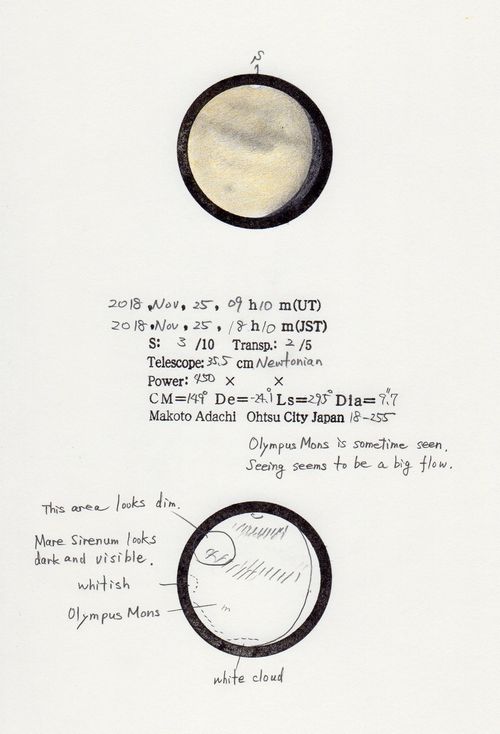 S
2018, Nov, 25, 09 h 10 m (UT)
2018, Nov, 25, 18 h 10 m (JST)
S: 3 /10 Transp.: 2 /5
Telescope: 35.5 cm Newtonian
Power: 450 × ×
CM=149° De=-24.1° Ls=295° Dia=9".7
Makoto Adachi Ohtsu City Japan 18-255
Olympus Mons is sometime seen.
Seeing seems to be a big flow.
This area looks dim.
Mare Sirenum looks
dark and visible.
whitish
Olympus Mons
white cloud